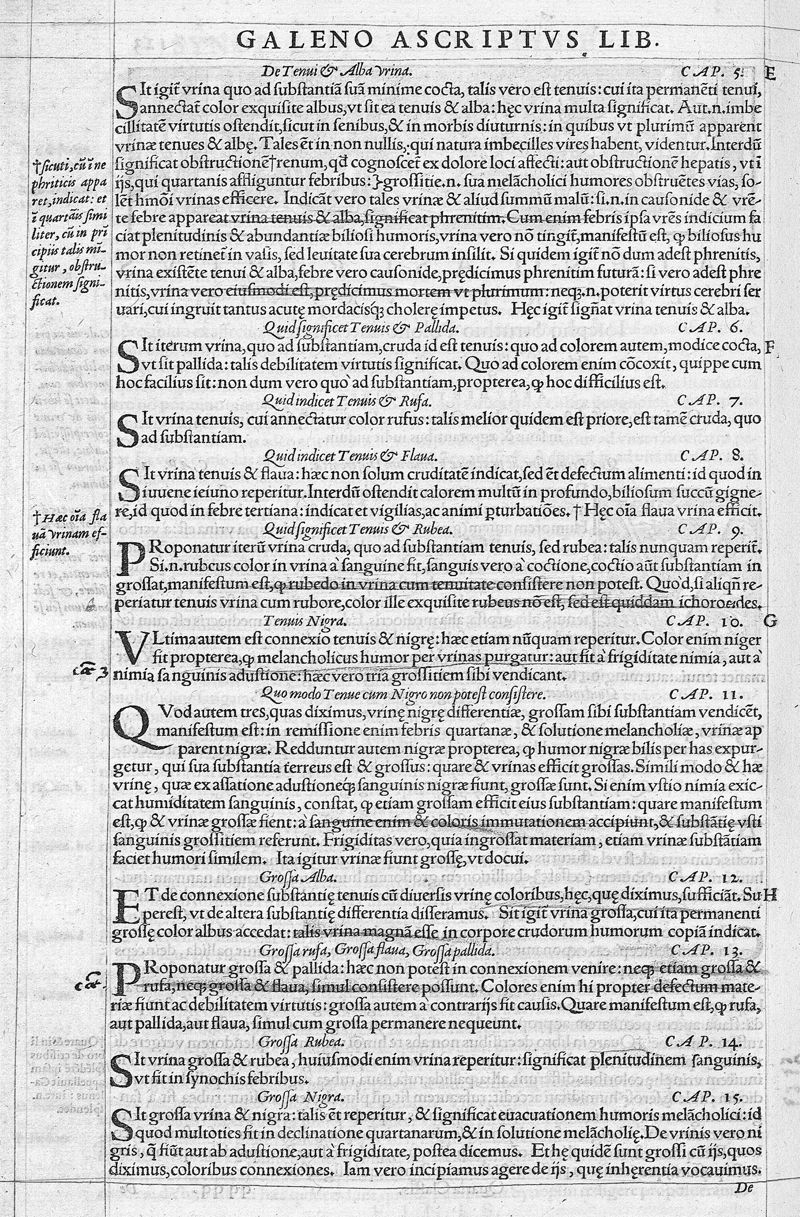 GALENO ASCRIPTVS LIB.
De Tenui & Alba vrina. CAP. 5. E
SIt igit̃ vrina quo ad substantiã suã minime cocta, talis vero est tenuis: cui ita permanẽti tenui,
annectat̃ color exquisite albus, vt sit ea tenuis & alba: hęc vrina multa significat. Aut.n.imbe
cillitatẽ virtutis ostendit, sicut in senibus, & in morbis diuturnis: in quibus vt plurimũ apparent
vrinæ tenues & albę. Tales ẽt in non nullis, qui natura imbecilles vires habent, videntur. Interdũ
significat obstructionẽ†renum, qđ cognoscet̃ ex dolore loci affecti: aut obstructionẽ hepatis, vt ĩ
ijs, qui quartanis affliguntur febribus: grossitie.n. sua melãcholici humores obstruẽtes vias, so-
lẽt hmõi vrinas efficere. Indicãt vero tales vrinæ & aliud summũ malũ: si.n.in causonide & vrẽ-
te febre appareat vrina tenuis & alba, significat phrenitim. Cum enim febris ipsa vrẽs indicium fa
ciat plenitudinis & abundantiæ biliosi humoris, vrina vero nõ tingit̃, manifestũ est, ꝙ biliosus hu
mor non retinet̃ in vasis, sed leuitate sua cerebrum insilit. Si quidem igit̃ nõ dum adest phrenitis,
vrina existẽte tenui & alba, febre vero causonide, prędicimus phrenitim futurã: si vero adest phre
nitis, vrina vero eiusmodi est, prędicimus mortem vt plurimum: neqꝫ.n.poterit virtus cerebri ser
uari, cui ingruit tantus acutę mordacisqꝫ cholerę impetus. Hęc igit̃ signat̃ vrina tenuis & alba.
†sicuti, cũ ĩ ne
phriticis appa
ret, indicat: et
ĩ quartãis simi
liter, cũ in prĩ
cipiis talis mĩ-
gitur, obstru-
ctionem signi-
ficat.
Quid significet Tenuis & Pallida. CAP. 6.
SIt iterum vrina, quo ad substantiam, cruda id est tenuis: quo ad colorem autem, modice cocta, F
vt sit pallida: talis debilitatem virtutis significat. Quo ad colorem enim cõcoxit, quippe cum
hoc facilius sit: non dum vero quo ad substantiam, propterea, ꝙ hoc difficilius est.
Quid indicet Tenuis & Rufa. CAP. 7.
SIt vrina tenuis, cui annectatur color rufus: talis melior quidem est priore, est tamẽ cruda, quo
ad substantiam.
Quid indicet Tenuis & Flaua. CAP. 8.
SIt vrina tenuis & flaua: hæc non solum cruditatẽ indicat, sed ẽt defectum alimenti: id quod in
iuuene ieiuno reperitur. Interdũ ostendit calorem multũ in profundo, biliosum succũ gigne-
re, id quod in febre tertiana: indicat et vigilias, ac animi ꝑturbatiões. † Hęc oĩa flaua vrina efficit.
† Hæc oĩa fla
uã vrinam ef-
ficiunt.
Quid significet Tenuis & Rubea. CAP. 9.
PRoponatur iterũ vrina cruda, quo ad substantiam tenuis, sed rubea: talis nunquam reperit̃.
Si.n.rubeus color in vrina à sanguine fit, sanguis vero à coctione, coctio aũt substantiam in
grossat, manifestum est, ꝙ rubedo in vrina cum tenuitate consistere non potest. Quòd, si aliqñ re-
periatur tenuis vrina cum rubore, color ille exquisite rubeus nõ est, sed est quiddam ichoroeides.
Tenuis Nigra. CAP. 10. G
VLtima autem est connexio tenuis & nigrę: hæc etiam nũquam reperitur. Color enim niger
fit propterea, ꝙ melancholicus humor per vrinas purgatur: aut fit à frigiditate nimia, aut à
nimia sanguinis adustione: hæc vero tria grossitiem sibi vendicant.
Quo modo Tenue cum Nigro non potest consistere. CAP. 11.
QVod autem tres, quas diximus, vrinę nigrę differentiæ, grossam sibi substantiam vendicẽt,
manifestum est: in remissione enim febris quartanæ, & solutione melancholiæ, vrinæ ap
parent nigræ. Redduntur autem nigræ propterea, ꝙ humor nigræ bilis per has expur-
getur, qui sua substantia terreus est & grossus: quare & vrinas efficit grossas. Simili modo & hæ
vrinę, quæ ex assatione adustioneqꝫ sanguinis nigræ fiunt, grossæ sunt. Si enim vstio nimia exic-
cat humiditatem sanguinis, constat, ꝙ etiam grossam efficit eius substantiam: quare manifestum
est, ꝙ & vrinæ grossæ fient: à sanguine enim & coloris immutationem accipiunt, & substãtię vsti
sanguinis grossitiem referunt. Frigiditas vero, quia ingrossat materiam, etiam vrinæ substãtiam
faciet humori similem. Ita igitur vrinæ fiunt grossę, vt docui.
Grossa Alba. CAP. 12.
ET de connexione substantię tenuis cũ diuersis vrinę coloribus, hęc, quę diximus, sufficiãt. Su H
perest, vt de altera substantię differentia disseramus. Sit igit̃ vrina grossa, cui ita permanenti
grossę color albus accedat: talis vrina magnã esse in corpore crudorum humorum copiã indicat.
Grossa rufa, Grossa flaua, Grossa pallida. CAP. 13.
PRoponatur grossa & pallida: hæc non potest in connexionem venire: neqꝫ etiam grossa &
rufa, neqꝫ grossa & flaua, simul consistere possunt. Colores enim hi propter defectum mate-
riæ fiunt ac debilitatem virtutis: grossa autem à contrarijs fit causis. Quare manifestum est, ꝙ rufa,
aut pallida, aut flaua, simul cum grossa permanere nequeunt.
Grossa Rubea. CAP. 14.
SIt vrina grossa & rubea, huiusmodi enim vrina reperitur: significat plenitudinem sanguinis,
vt fit in synochis febribus.
Grossa Nigra. CAP. 15.
SIt grossa vrina & nigra: talis ẽt reperitur, & significat euacuationem humoris melãcholici: id
quod multoties fit in declinatione quartanarum, & in solutione melãcholię. De vrinis vero ni
gris, q̃ fiũt aut ab adustione, aut à frigiditate, postea dicemus. Et hę quidẽ sunt grossi cũ ijs, quos
diximus, coloribus connexiones. Iam vero incipiamus agere de ijs, quę inhęrentia vocauimus.
De